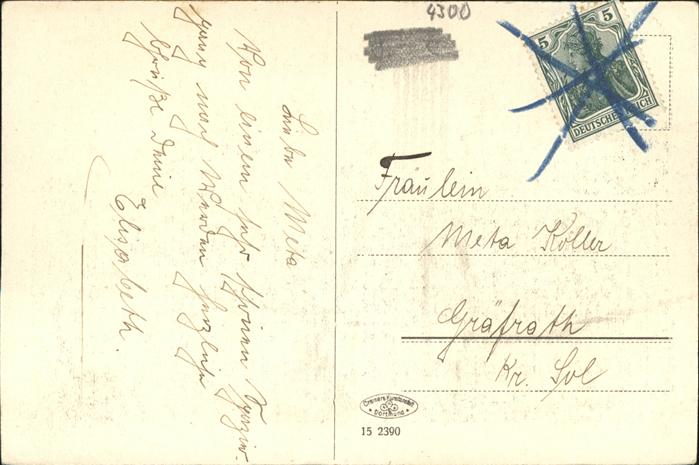 Liebe Meta
Von einem sehr schönen Spazier-
gang nach Werden herzliche
Grüße Deine
Elisabeth.
4300
5 5
DEUTSCHES REICH
Fräulein
Meta Köller
Gräfrath
Kr. Sol
Dortmund
15 2390